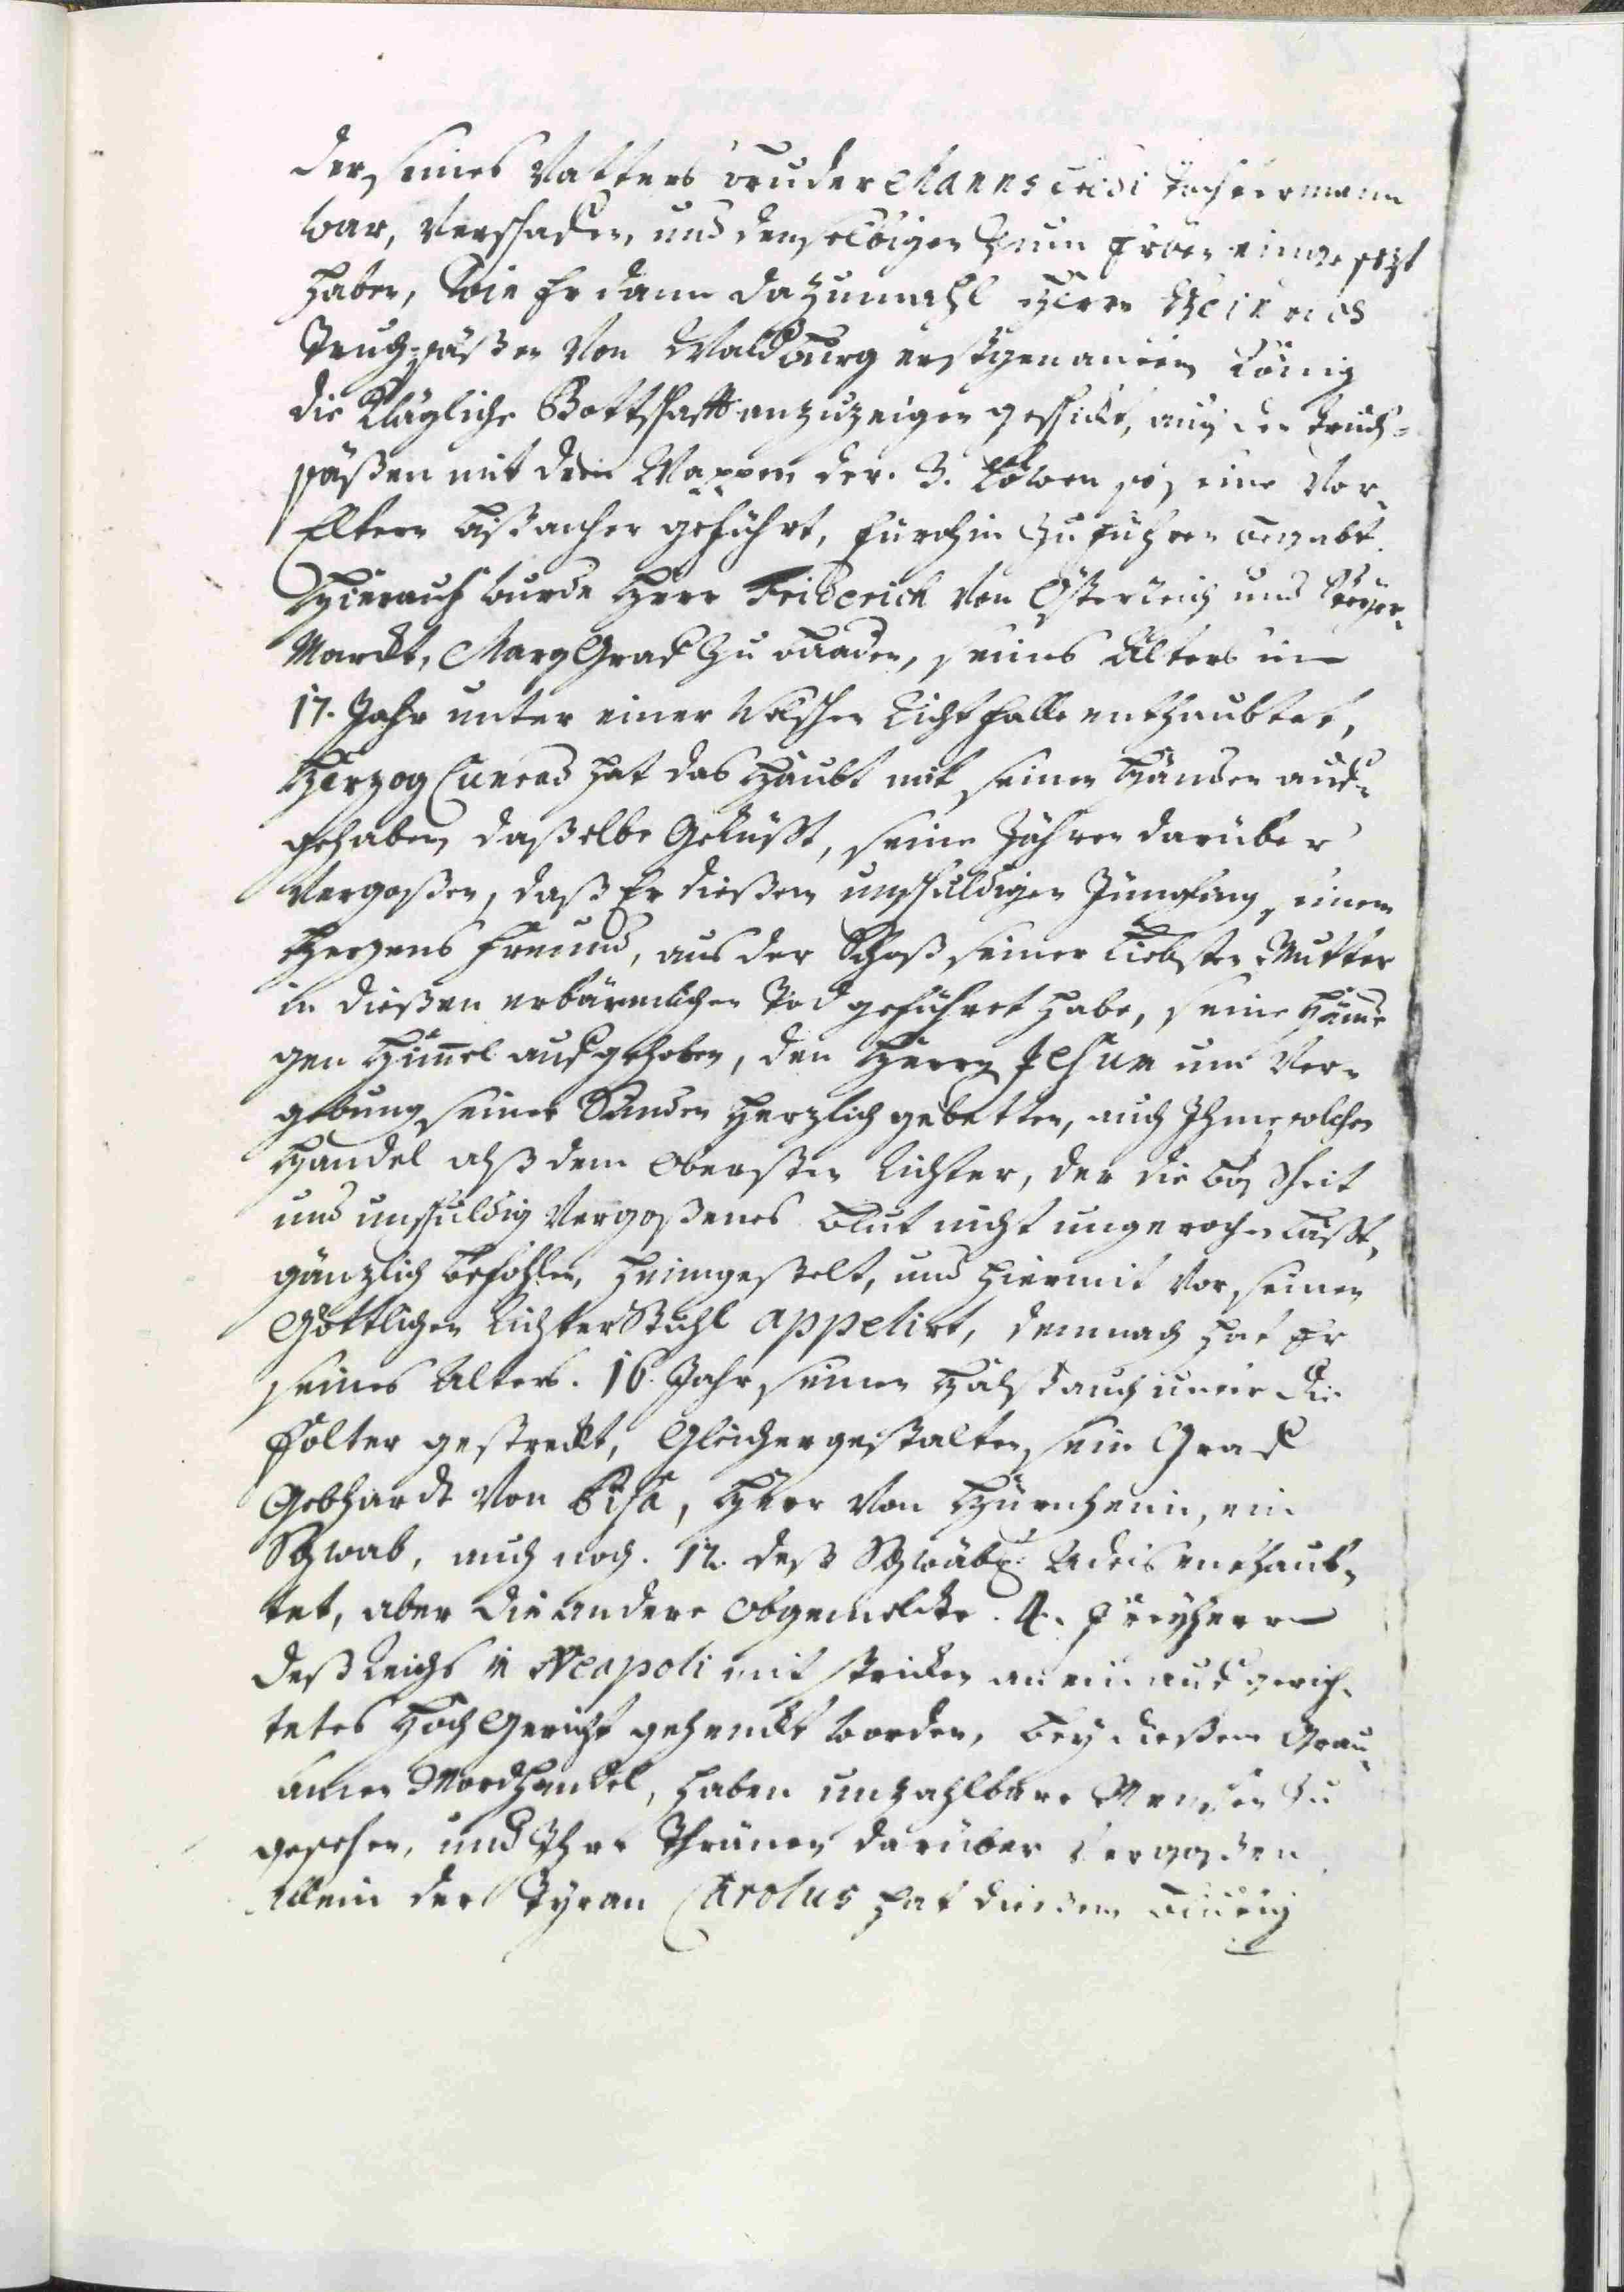 der seines Vatters bruder Mannsfredi Tochtermann
war, verschaffen, und denselbigen Zum Erben eingesezt
haben, Wie Er dann dazumahl Herrn Heinrich
Truchsäßen Von Waldburg erstgenanten König
die Klägliche Bottschafft anzuzeigen geschickt, auch den Truch-
säßen mit dem Wappen der. 3. Löwen so seine Vor-
Eltern bißanher geführt, fürohin Zu führen begabt.
Hierauf wurde Herr Friderich Von Österreich und Steyer-
Marckt, Marg Graf Zu Baaden, seines Alters im
17. Jahr unter einer Welschen Richtfalle enthaubtet,
Herzog Cunrad hat das Haubt mit seinen Händen auf-
gehaben, daßelbe Geküßt, seine Zähren darüber
Vergoßen, daß Er dießen unschuldigen Jüngling, einen
Herzens freund, aus der Schoß seiner Liebsten Mutter
in dießen erbärmlichen Tod geführet habe, seine Hände
gen Himmel aufgehoben, den Herrn Jesum um Ver-
gebung seiner Sünden Herzlich gebetten, auch Ihme solchen
Handel alß dem Obersten Richter, der die Boßheit
und unschuldig Vergoßenes Blut nicht ungerochen laßt,
gänzlich befohlen, heimgestelt, und hiermit Vor seinen
Göttlichen Richter Stuhl appelirt, demnach hat Er
seines Alters. 16. Jahr seinen Halß auch unter die
Folter gestreckt, Gleichergestalten, sein Graf
Gebhardt Von Pisa, Herr Von Hürnheim, ein
Schwab, auch noch. 12. deß Schwäb: Adels enthaub-
tet, aber die andere obgemelte. 4. Freyherrn
deß Reichs in Neapoli mit stricken an ein aufgerich-
tetes Hoch Gericht gehenckt worden, bey dießem Grau-
samen Mordhandel, haben unzahlbare Menschen Zu
gesehen, und Ihre Thränen darüber Vergoßen
Allein der Tyran Carolus hat dießem